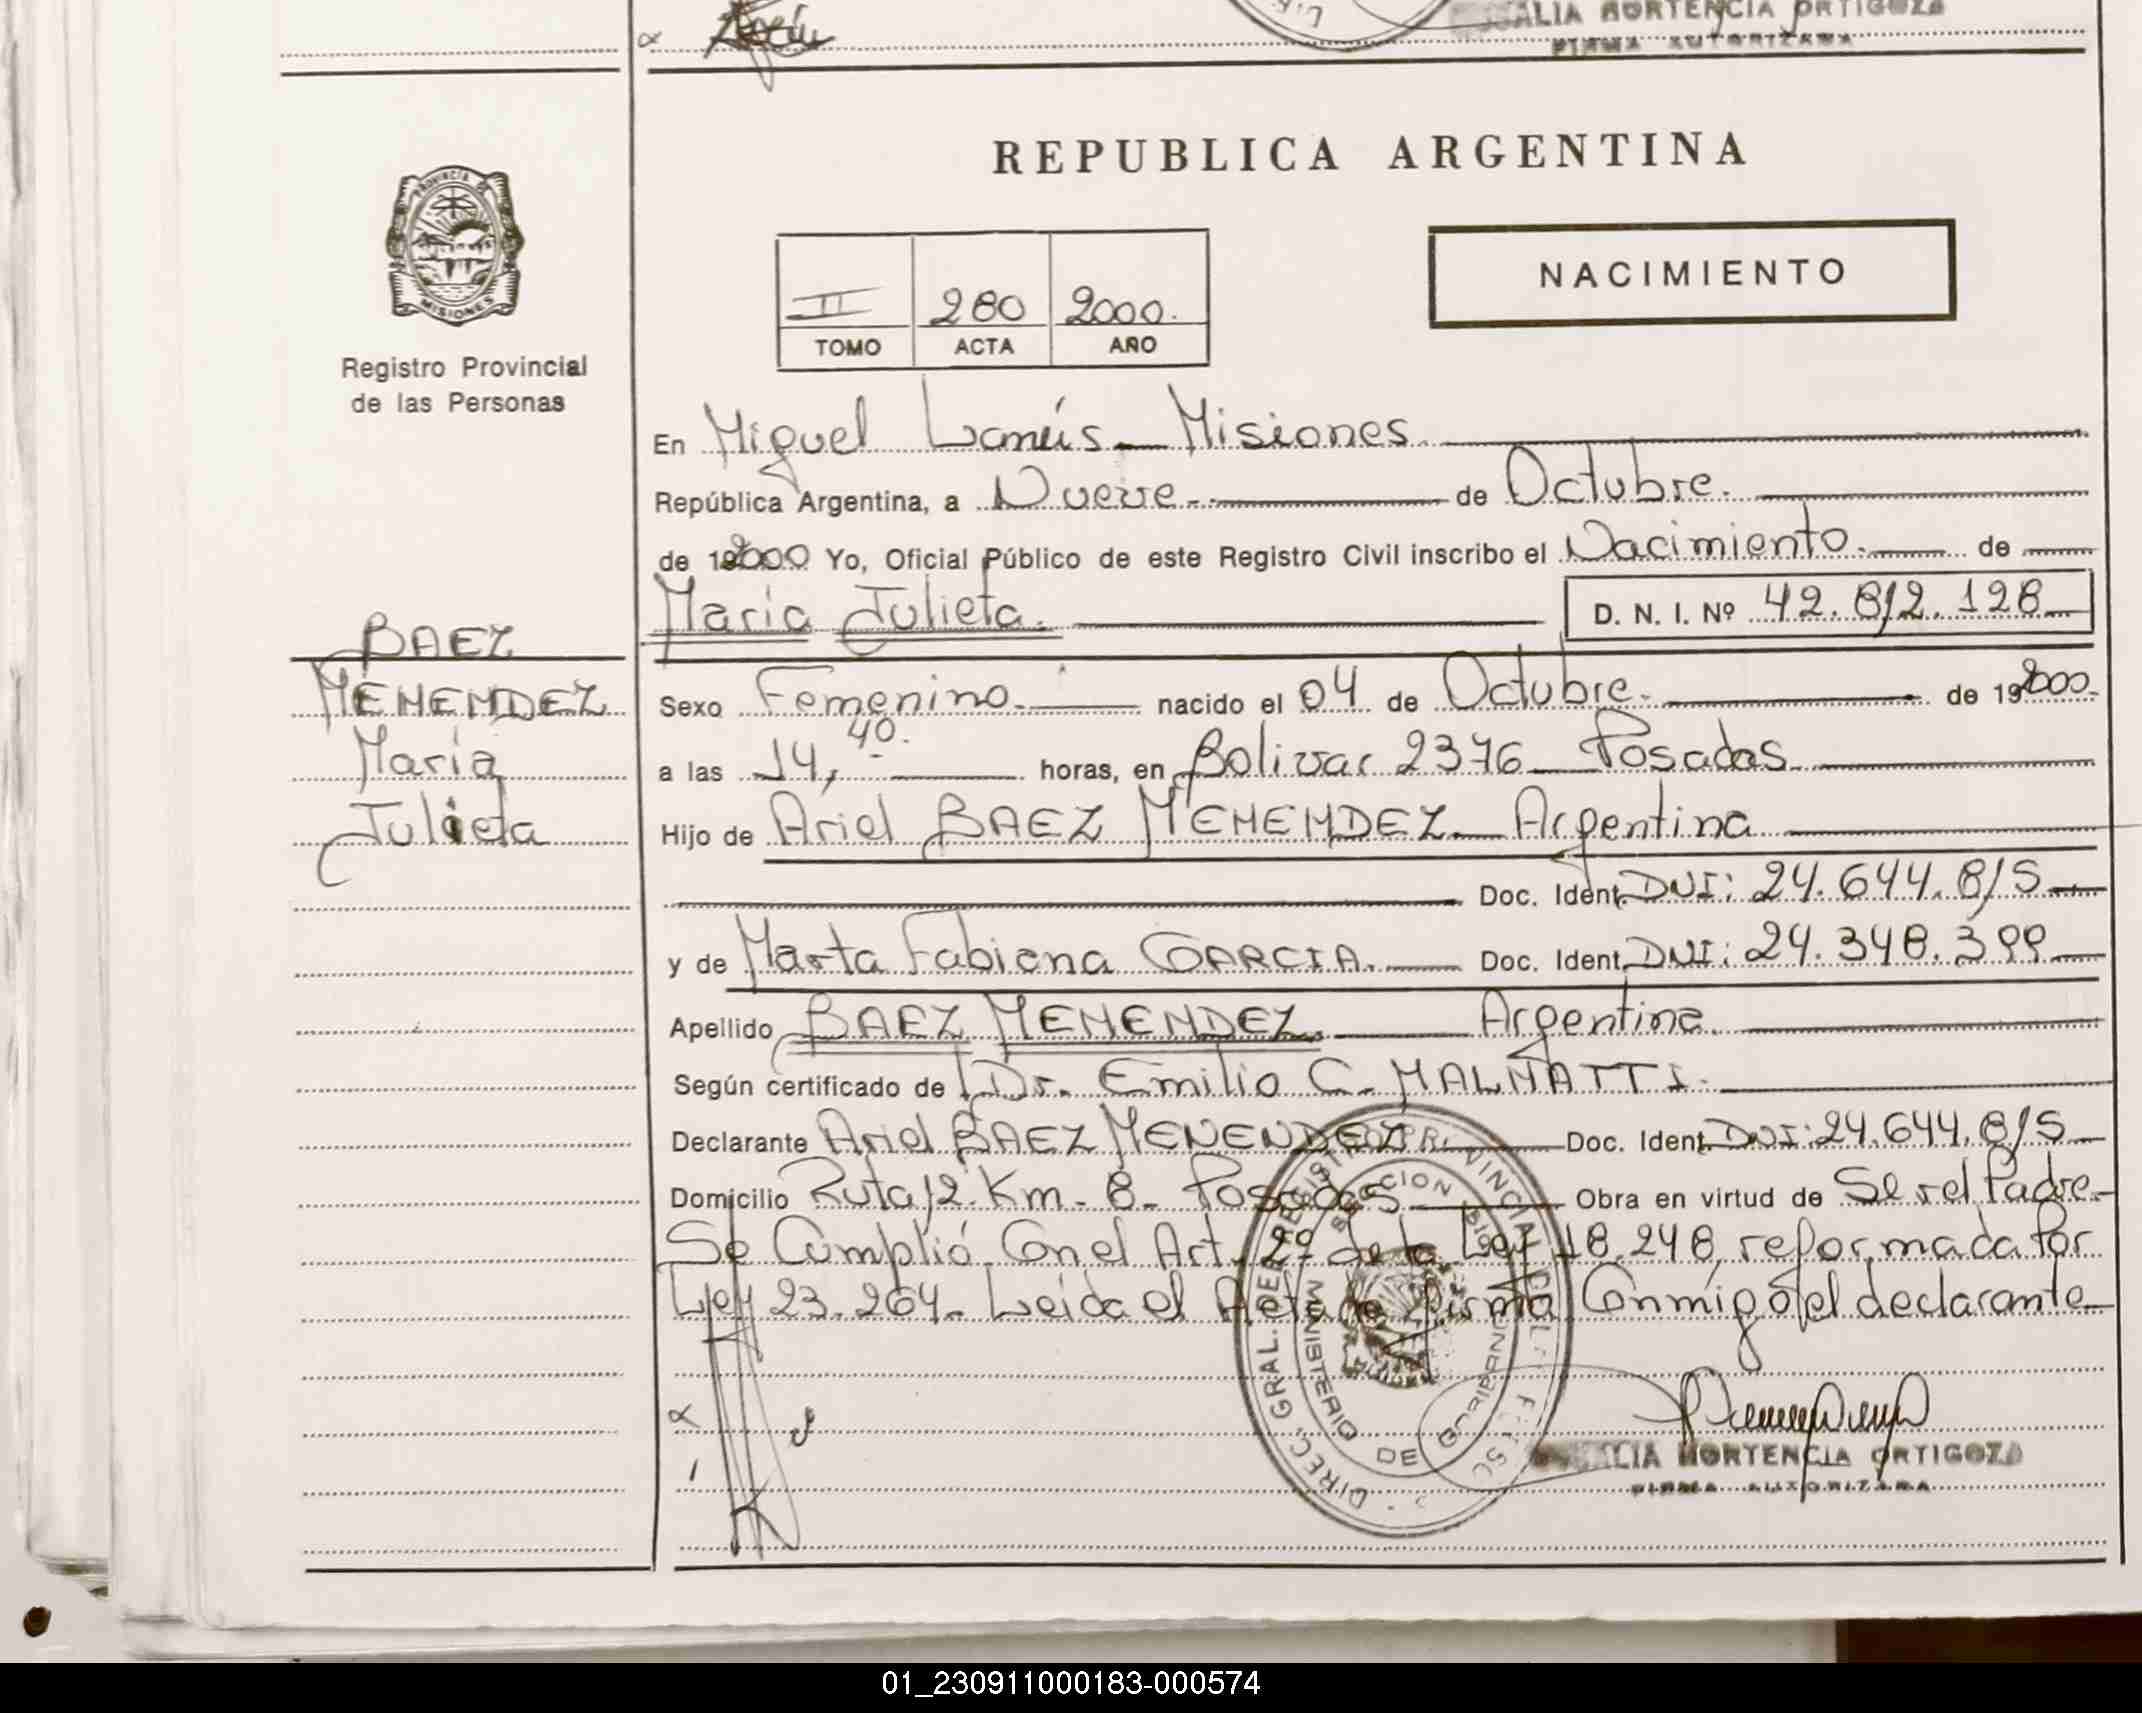 HORTENCIA ORTIGOZA
FIRMA AUTORIZADA
REPUBLICA ARGENTINA
PROVINCIA DE
MISIONES
Registro Provincial
de las Personas
II 280 2000.
TOMO ACTA AÑO
NACIMIENTO
En Miguel Lanús - Misiones.
República Argentina, a Nueve. de Octubre.
de 192000 Yo, Oficial Público de este Registro Civil inscribo el Nacimiento. de
María Julieta. D. N. I. Nº 42.812.128
BAEZ
MENENDEZ
María
Julieta
Sexo Femenino. nacido el 04 de Octubre. de 192000.
a las 14,40. horas, en Bolivar 2376 - Posadas
Hijo de Ariel BAEZ MENENDEZ - Argentina
Doc. Ident. DNI: 24.644.815
y de Marta Fabiana GARCIA. Doc. Ident. DNI: 24.348.399
Apellido BAEZ MENENDEZ. Argentina.
Según certificado de Dr. Emilio C. MALNATTI.
Declarante Ariel BAEZ MENENDEZ Doc. Ident. DNI: 24.644.815
Domicilio Ruta 12. Km - 8 - Posadas Obra en virtud de Ser el Padre.
Se Cumplió Con el Art. 2º de la Ley 18.248, reformada Por
Ley 23.264. Leida el Acta la firma Conmigo el declarante
DIREC. GRAL. DEL REGISTRO PROVINCIAL
MINISTERIO DE GOBIERNO
HORTENCIA ORTIGOZA
FIRMA AUTORIZADA
01_230911000183-000574